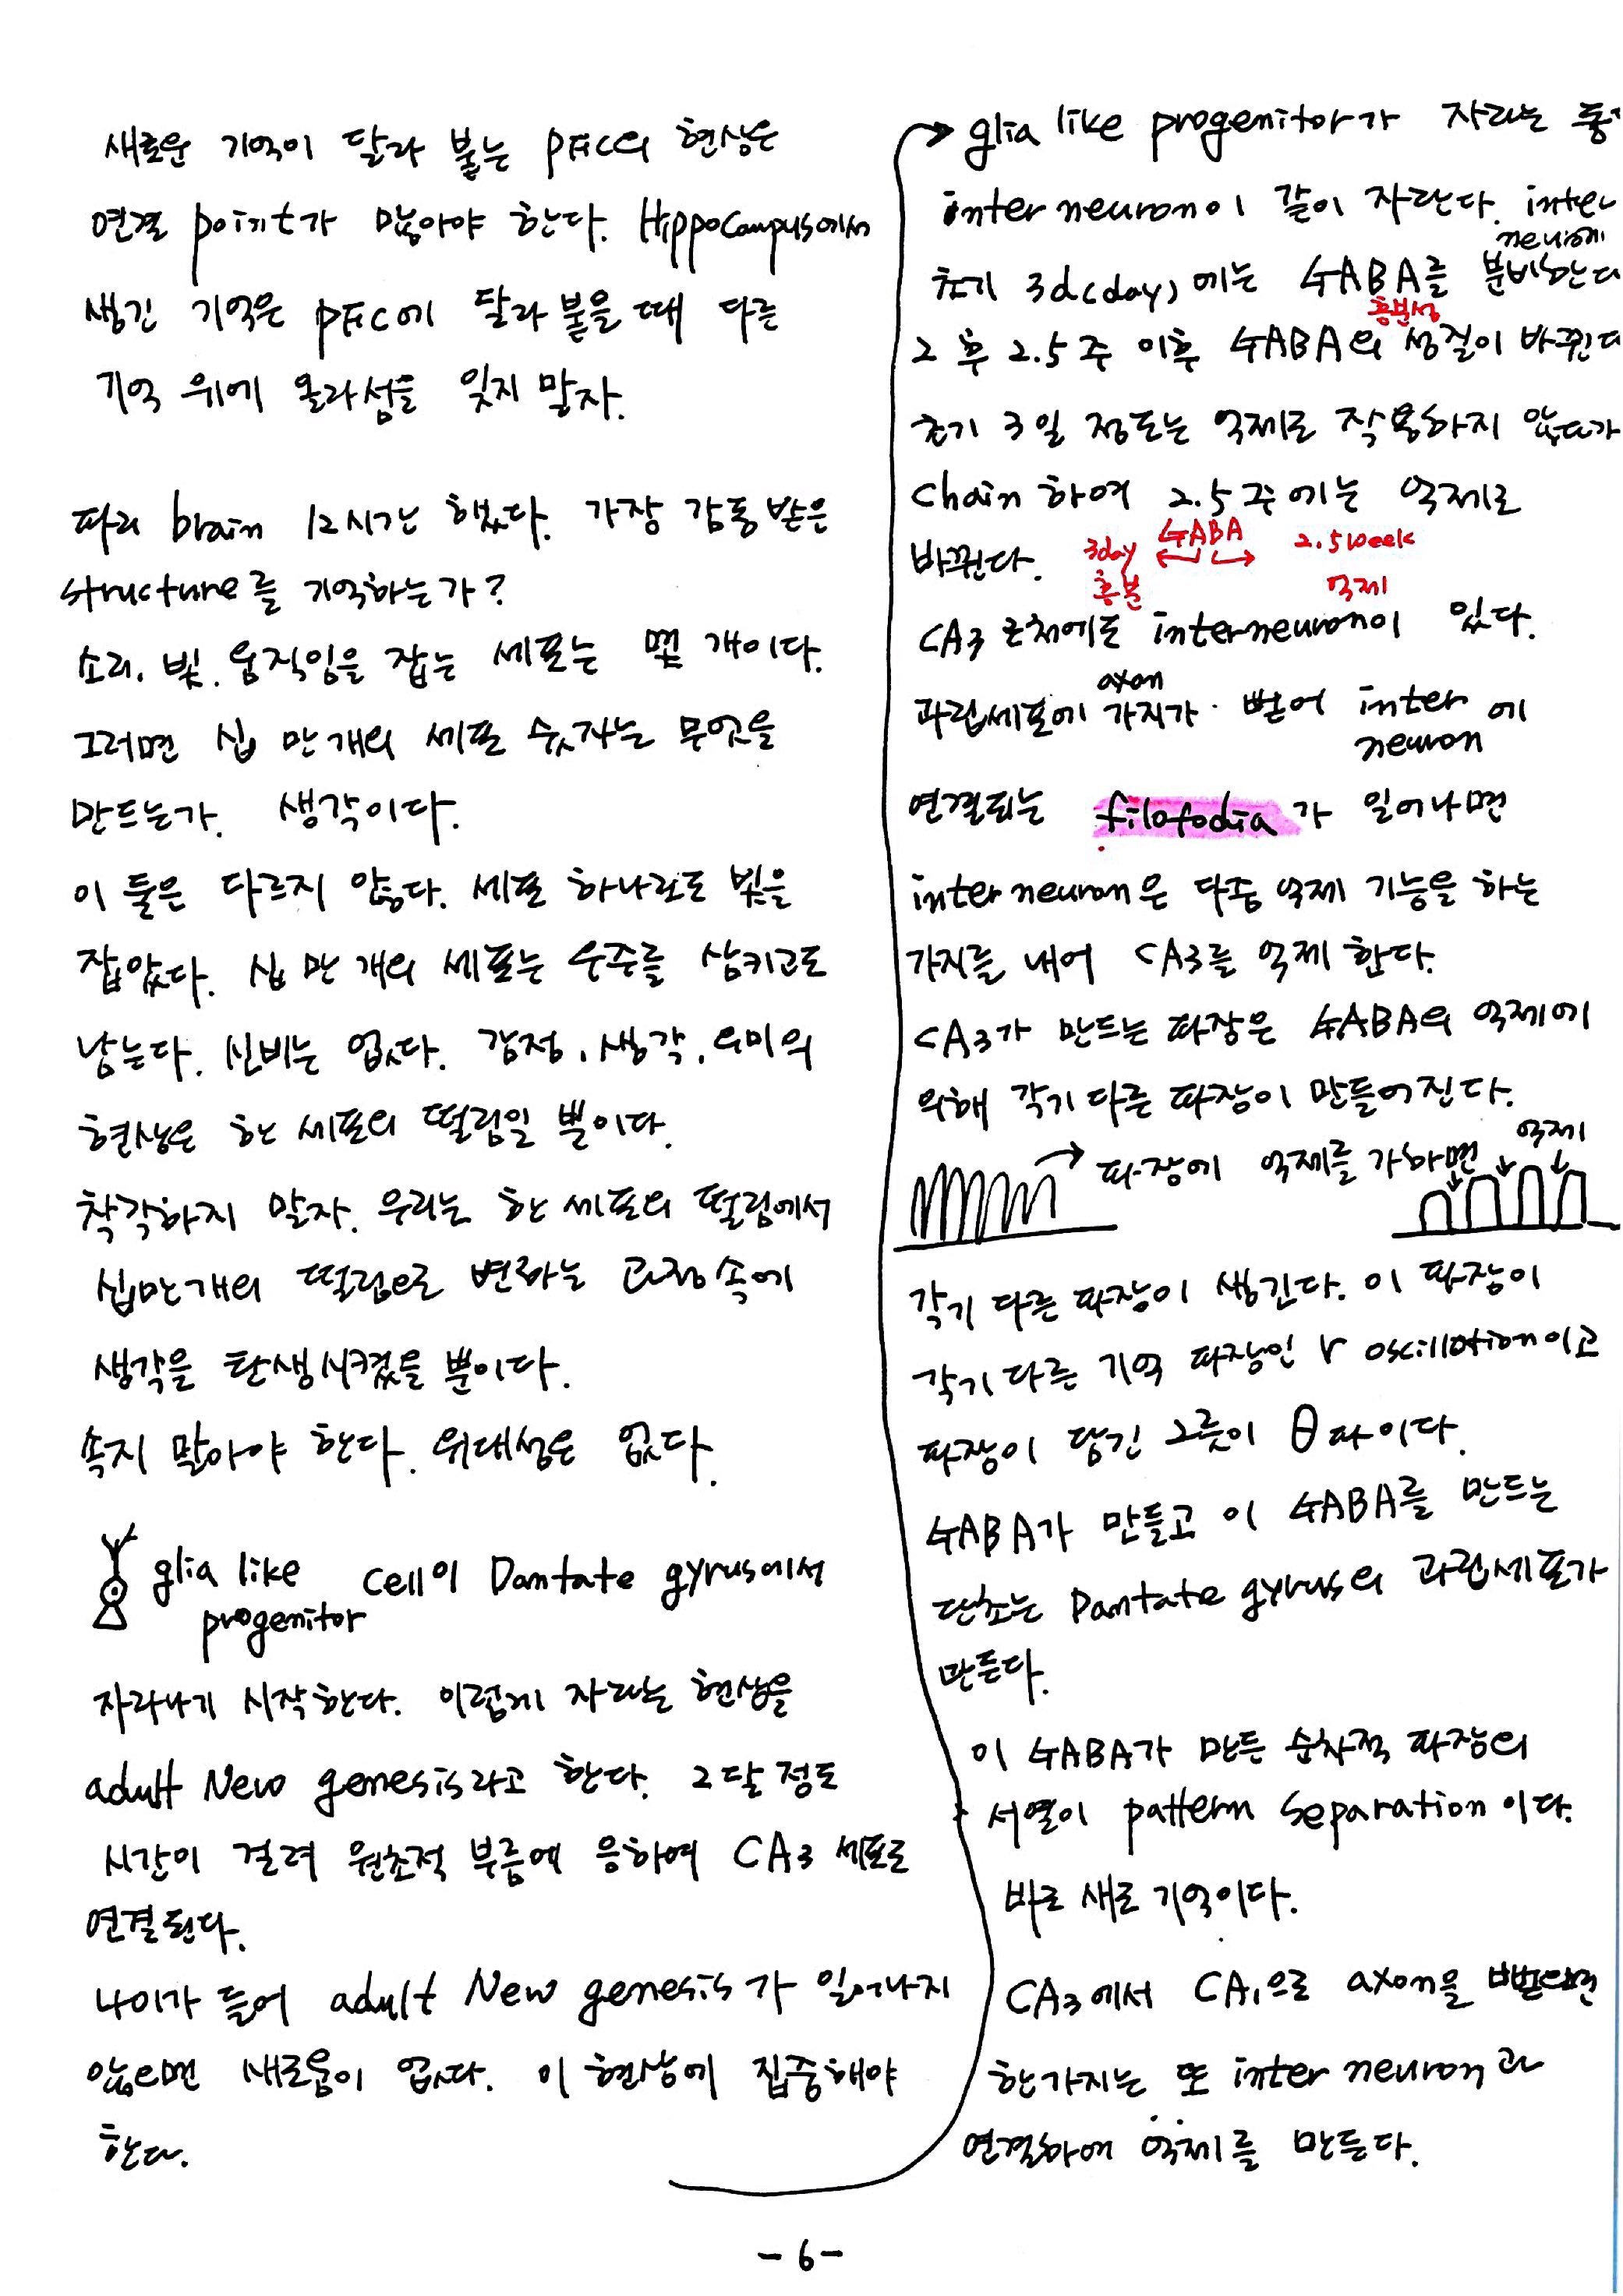 새로운 기억이 달라 붙는 PFC의 현상은
연결 point가 많아야 한다. Hippocampus에서
생긴 기억은 PFC에 달라 붙을 때 다른
기억 위에 올라섬을 잊지 말자.
파리 brain 12시간 했었다. 가장 감동 받은
structure를 기억하는가?
소리. 빛. 움직임을 잡는 세포는 몇 개이다.
그러면 십 만 개의 세포 숫자는 무엇을
만드는가. 생각이다.
이 둘은 다르지 않다. 세포 하나라도 빛을
잡았다. 십 만 개의 세포는 우주를 삼키고도
남는다. 신비는 없다. 감정, 생각, 의미의
현상은 한 세포의 떨림일 뿐이다.
착각하지 말자. 우리는 한 세포의 떨림에서
십만개의 떨림으로 변하는 과정 속에
생각을 탄생시켰을 뿐이다.
속지 말아야 한다. 위대성은 없다.
glia like progenitor cell이 Dantate gyrus에서
자라나기 시작한다. 이렇게 자라는 현상을
adult New genesis라고 한다. 2달 정도
시간이 걸려 원초적 부름에 응하여 CA3 세포로
연결된다.
나이가 들어 adult New genesis가 일어나지
않으면 새로움이 없다. 이 현상에 집중해야
한다.
glia like progenitor가 자라는 동
inter neuron이 같이 자란다. inter
neuron에
초기 3d(day)에는 GABA를 분비한다
흥분성
2 후 2.5주 이후 GABA의 성질이 바뀐다
초기 3일 정도는 억제로 작용하지 않다가
chain하여 2.5주에는 억제로
바뀐다. 3day GABA 2.5week
흥분 억제
CA3 근처에도 interneuron이 있다.
axon
과립세포에 가지가 뻗어 inter neuron에
연결되는 filofodia가 일어나면
inter neuron은 다중 억제 기능을 하는
가지를 내어 CA3를 억제 한다.
CA3가 만드는 파장은 GABA의 억제에
의해 각기 다른 파장이 만들어진다.
파장에 억제를 가하면 억제
각기 다른 파장이 생긴다. 이 파장이
각기 다른 기억 파장인 r oscillation이고
파장이 담긴 그릇이 θ파이다.
GABA가 만들고 이 GABA를 만드는
단초는 Dantate gyrus의 과립세포가
만든다.
이 GABA가 만든 순차적 파장의
서열이 pattern separation이다.
바로 새로 기억이다.
CA3에서 CA1으로 axon을 뻗으면
한가지는 또 inter neuron과
연결하여 억제를 만든다.
-6-